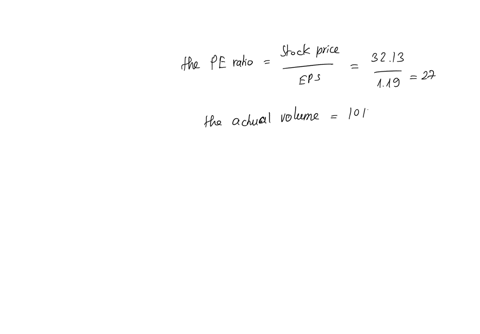 the PE ratio = Stock price / EPS = 32.13 / 1.19 = 27
the actual volume = 101